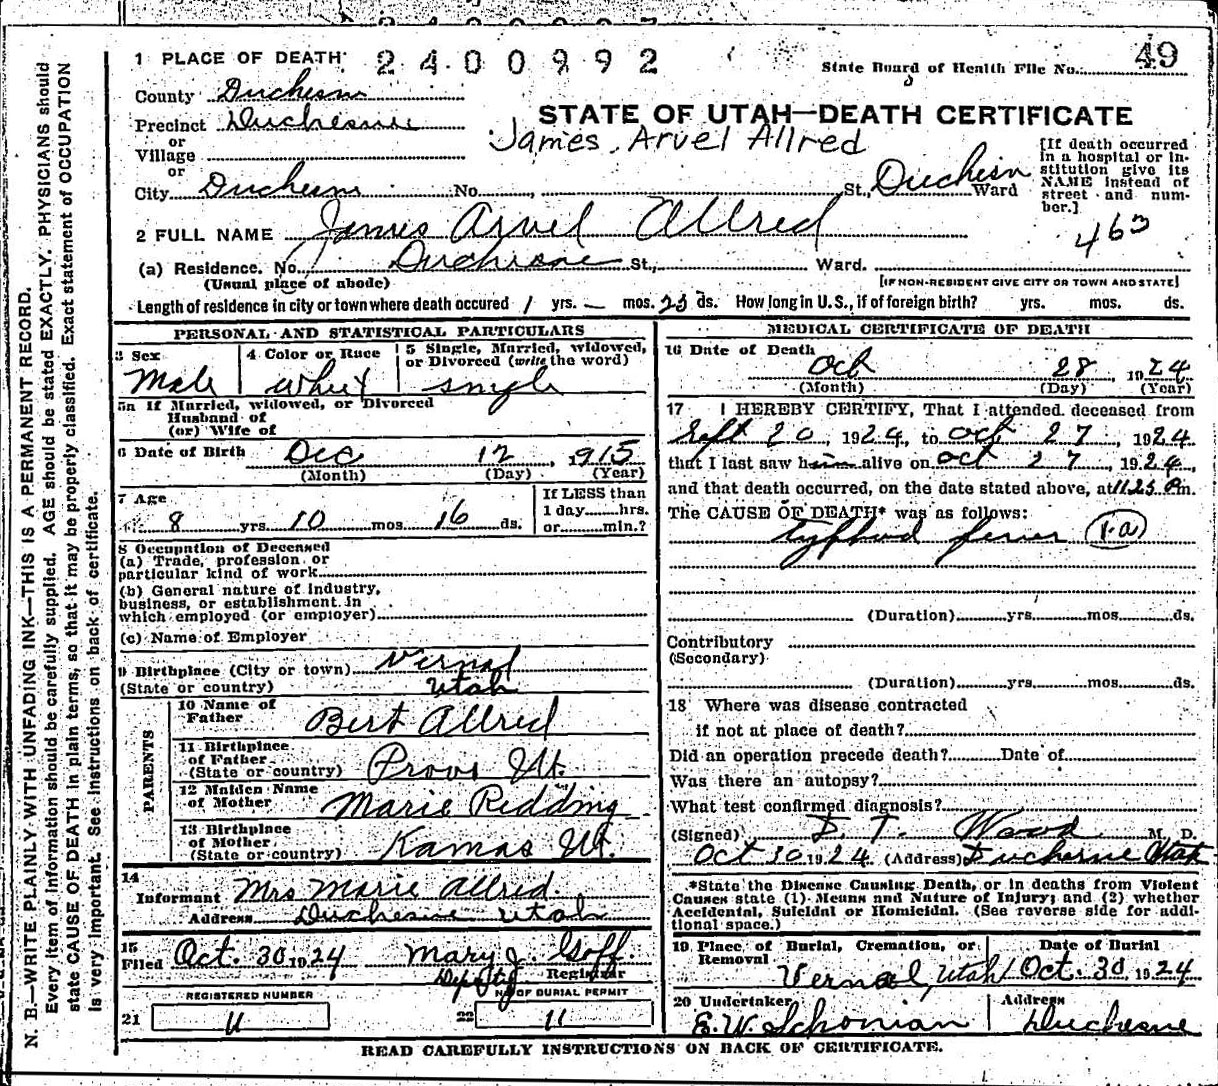 1 PLACE OF DEATH 2400992 State Board of Health File No. 49
County Duchesne
STATE OF UTAH—DEATH CERTIFICATE
Precinct Duchesne
James Arvel Allred
or
Village
or
City Duchesne No. , St., Duchesn Ward
[If death occurred in a hospital or institution give its NAME instead of street and number.]
463
2 FULL NAME James Arvel Allred
(a) Residence. No. Duchesne St., Ward.
(Usual place of abode) [IF NON-RESIDENT GIVE CITY OR TOWN AND STATE]
Length of residence in city or town where death occured 1 yrs. – mos. 23 ds. How long in U. S., if of foreign birth? yrs. mos. ds.
PERSONAL AND STATISTICAL PARTICULARS
3 Sex
Male
4 Color or Race
White
5 Single, Married, widowed, or Divorced (write the word)
Single
5a If Married, widowed, or Divorced
Husband of
(or) Wife of
6 Date of Birth Dec 12, 1915
(Month) (Day) (Year)
7 Age
8 yrs 10 mos 16 ds.
If LESS than
1 day hrs.
or min.?
8 Occupation of Deceased
(a) Trade, profession or
particular kind of work
(b) General nature of industry,
business, or establishment in
which employed (or employer)
(c) Name of Employer
9 Birthplace (City or town) Vernal
(State or country) Utah
PARENTS
10 Name of
Father Bert Allred
11 Birthplace
of Father
(State or country) Provo Ut.
12 Maiden Name
of Mother Marie Redding
13 Birthplace
of Mother
(State or country) Kamas Ut.
14
Informant Mrs Marie Allred.
Address Duchesne Utah
15
Filed Oct. 30 1924 Mary J. Goff.
Deputy Registrar
REGISTERED NUMBER
21 11
NO OF BURIAL PERMIT
22 11
MEDICAL CERTIFICATE OF DEATH
16 Date of Death
Oct 28, 1924
(Month) (Day) (Year)
17 I HEREBY CERTIFY, That I attended deceased from
Sept 20, 1924, to Oct 27, 1924
that I last saw him alive on Oct 27, 1924,
and that death occurred, on the date stated above, at 11 25 P m.
The CAUSE OF DEATH* was as follows:
Typhoid fever 1-a
(Duration) yrs. mos. ds.
Contributory
(Secondary)
(Duration) yrs. mos. ds.
18 Where was disease contracted
if not at place of death?
Did an operation precede death? Date of
Was there an autopsy?
What test confirmed diagnosis?
(Signed) D. T. Wood M. D.
Oct 30 1924. (Address) Duchesne Utah
*State the Disease Causing Death, or in deaths from Violent
Causes state (1) Means and Nature of Injury; and (2) whether
Accidental, Suicidal or Homicidal. (See reverse side for additional space.)
19 Place of Burial, Cremation, or
Removal
Vernal, Utah
Date of Burial
Oct. 30 1924
20 Undertaker
E. W. Schonian
Address
Duchesne
READ CAREFULLY INSTRUCTIONS ON BACK OF CERTIFICATE.
N. B.—WRITE PLAINLY WITH UNFADING INK—THIS IS A PERMANENT RECORD.
Every item of information should be carefully supplied. AGE should be stated EXACTLY. PHYSICIANS should
state CAUSE OF DEATH in plain terms, so that it may be properly classified. Exact statement of OCCUPATION
is very important. See instructions on back of certificate.